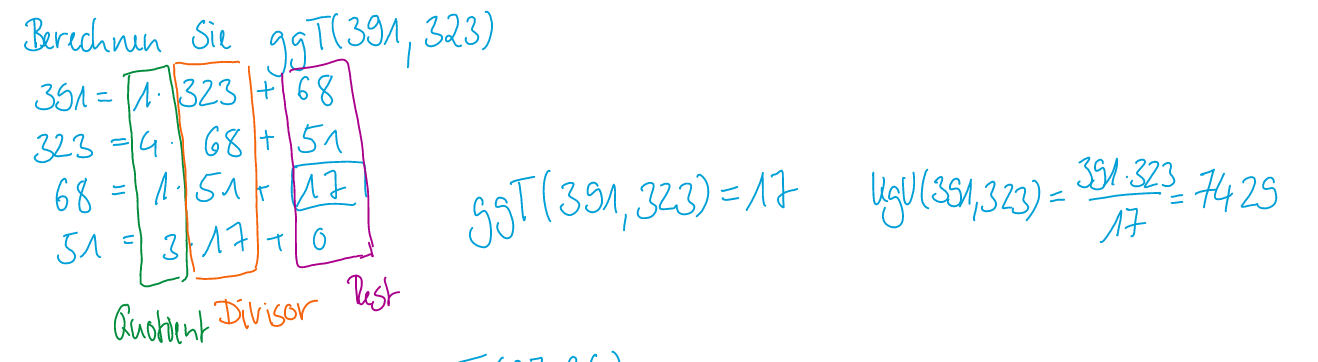 Berechnen Sie ggT(391, 323)
391 = 1 · 323 + 68
323 = 4 · 68 + 51
68 = 1 · 51 + 17
51 = 3 · 17 + 0
Quotient Divisor Rest
ggT(391, 323) = 17
kgV(391, 323) = 391 · 323 / 17 = 7429